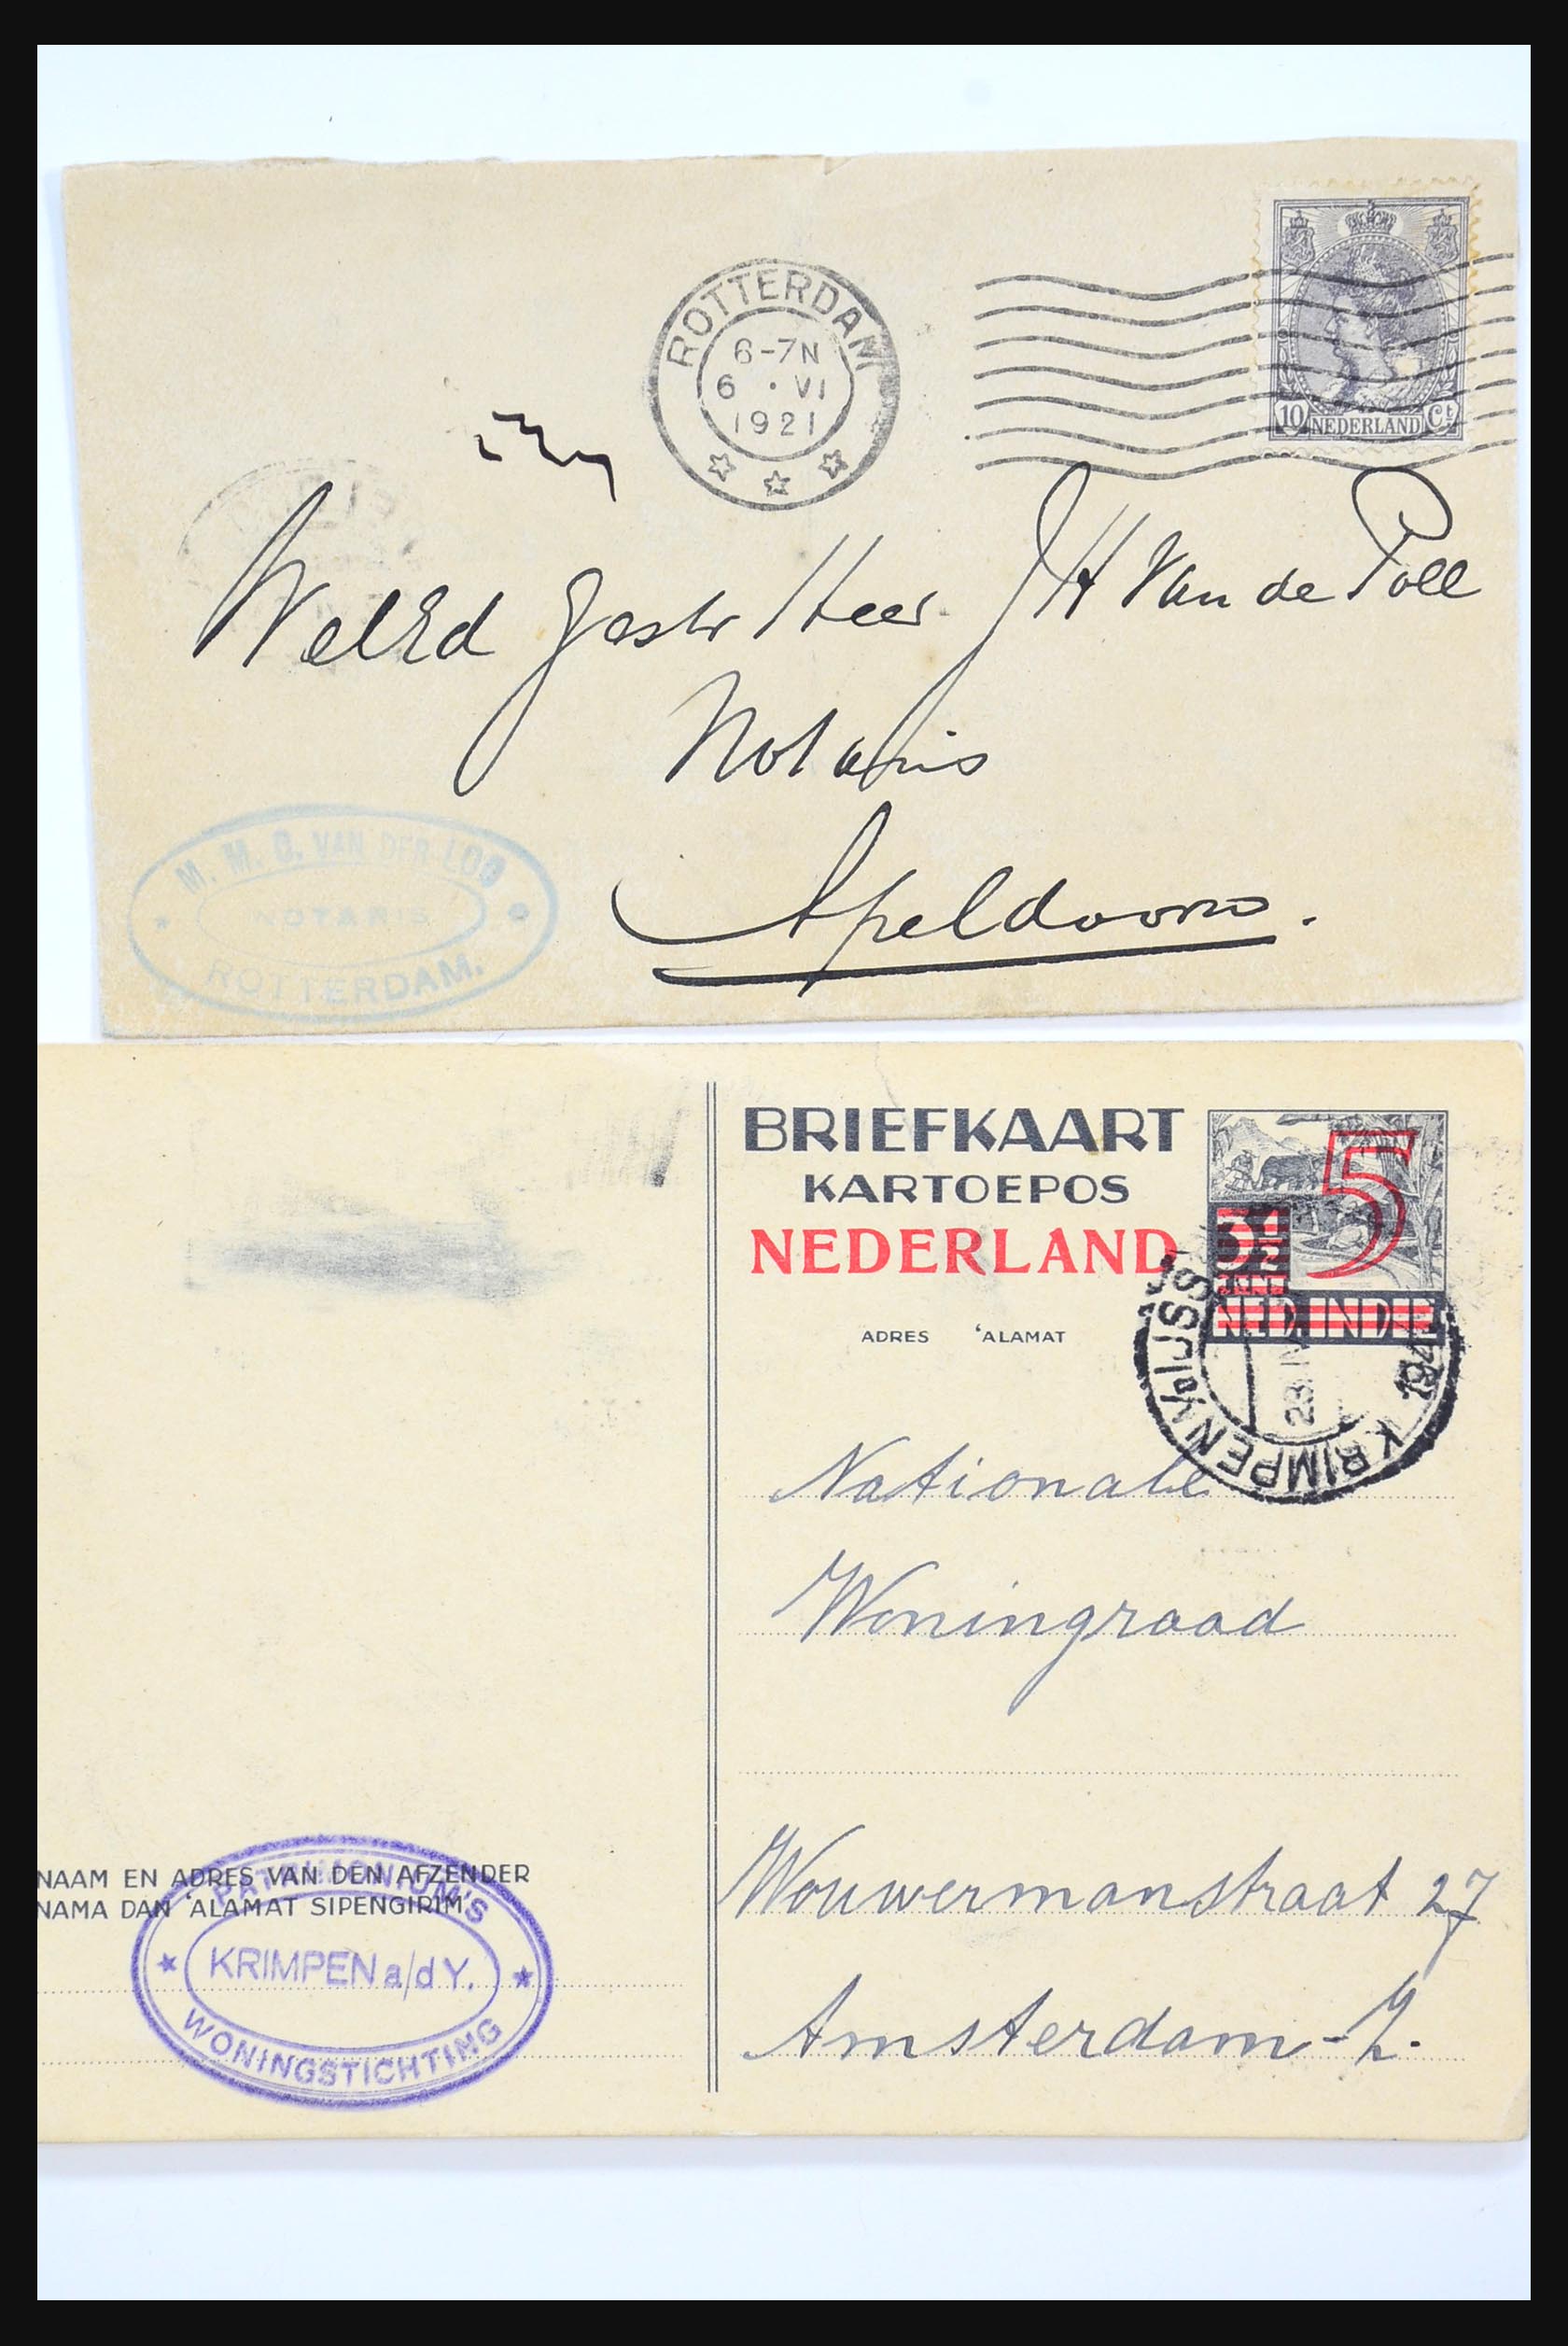 ROTTERDAM
6-7N
6 · VI
1921
10 NEDERLAND Ct
WelEd Gestr Heer J H Van de Poll
Notaris
Apeldoorn.
M. M. C. VAN DER LOO
NOTARIS
ROTTERDAM.
BRIEFKAART
KARTOEPOS
NEDERLAND
5
3½
CENT
NED. INDIE
ADRES 'ALAMAT
KRIMPEN
Nationale
Woningraad
Wouwermanstraat 27
Amsterdam-Z.
NAAM EN ADRES VAN DEN AFZENDER
NAMA DAN 'ALAMAT SIPENGIRIM
PATRIMONIUM'S
KRIMPEN a/d Y.
WONINGSTICHTING